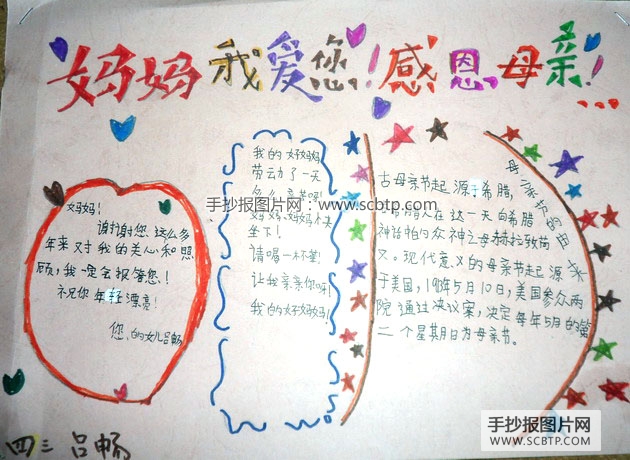 妈妈我爱您!感恩母亲!...
妈妈!
谢谢您这么多
年来对我的关心和照
顾,我一定会报答您!
祝你年轻漂亮!
您的女儿吕畅
我的好妈妈
劳动了一天
妈妈,妈妈快
坐下!
请喝一杯茶!
让我亲亲你呀!
我的好妈妈!
母亲节的由来
古母亲节起源于希腊,
古希腊人在这一天向希腊
神话中的众神之母赫拉致
义。现代意义的母亲节起源
于美国,1913年5月10日,美国参众两
院通过决议案,决定每年5月的第
二个星期日为母亲节。
四三 吕畅
手抄报图片网:www.scbtp.com
手抄报图片网
WWW.SCBTP.COM